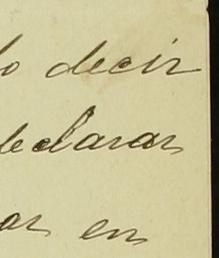 lo decir
declarar
ar en